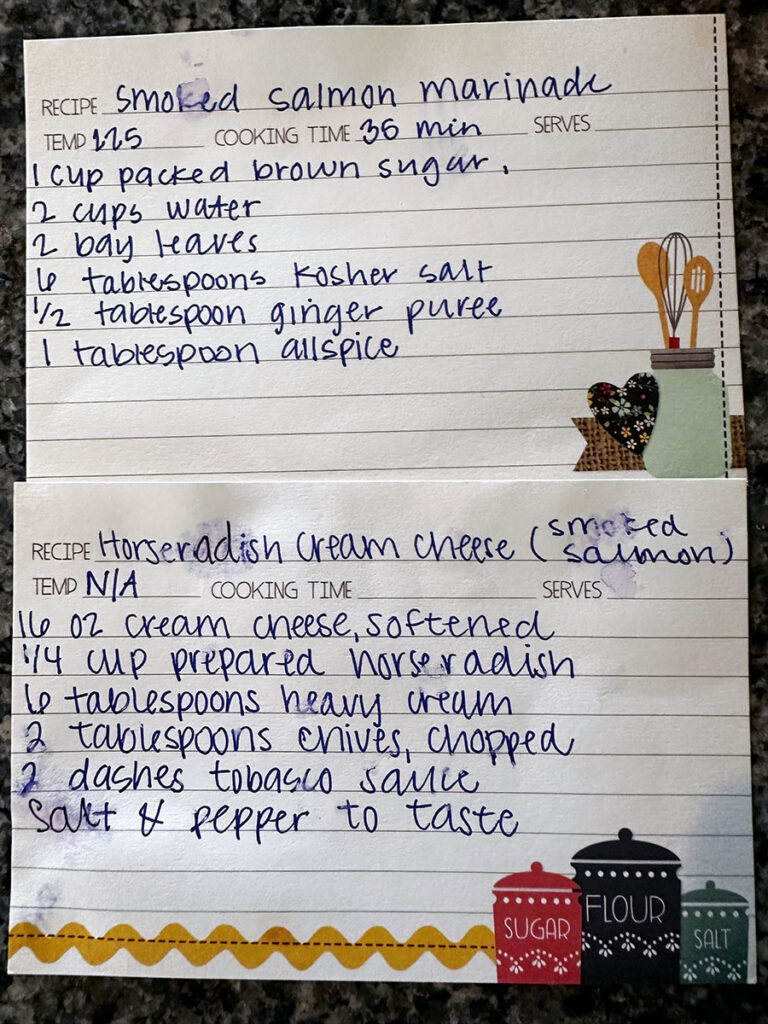 RECIPE Smoked salmon marinade
TEMP 225 COOKING TIME 36 min SERVES
1 cup packed brown sugar.
2 cups water
2 bay leaves
6 tablespoons kosher salt
1/2 tablespoon ginger puree
1 tablespoon allspice
RECIPE Horseradish cream cheese (smoked salmon)
TEMP N/A COOKING TIME SERVES
16 oz cream cheese, softened
1/4 cup prepared horseradish
6 tablespoons heavy cream
2 tablespoons chives, chopped
2 dashes tobasco sauce
salt & pepper to taste
SUGAR FLOUR SALT